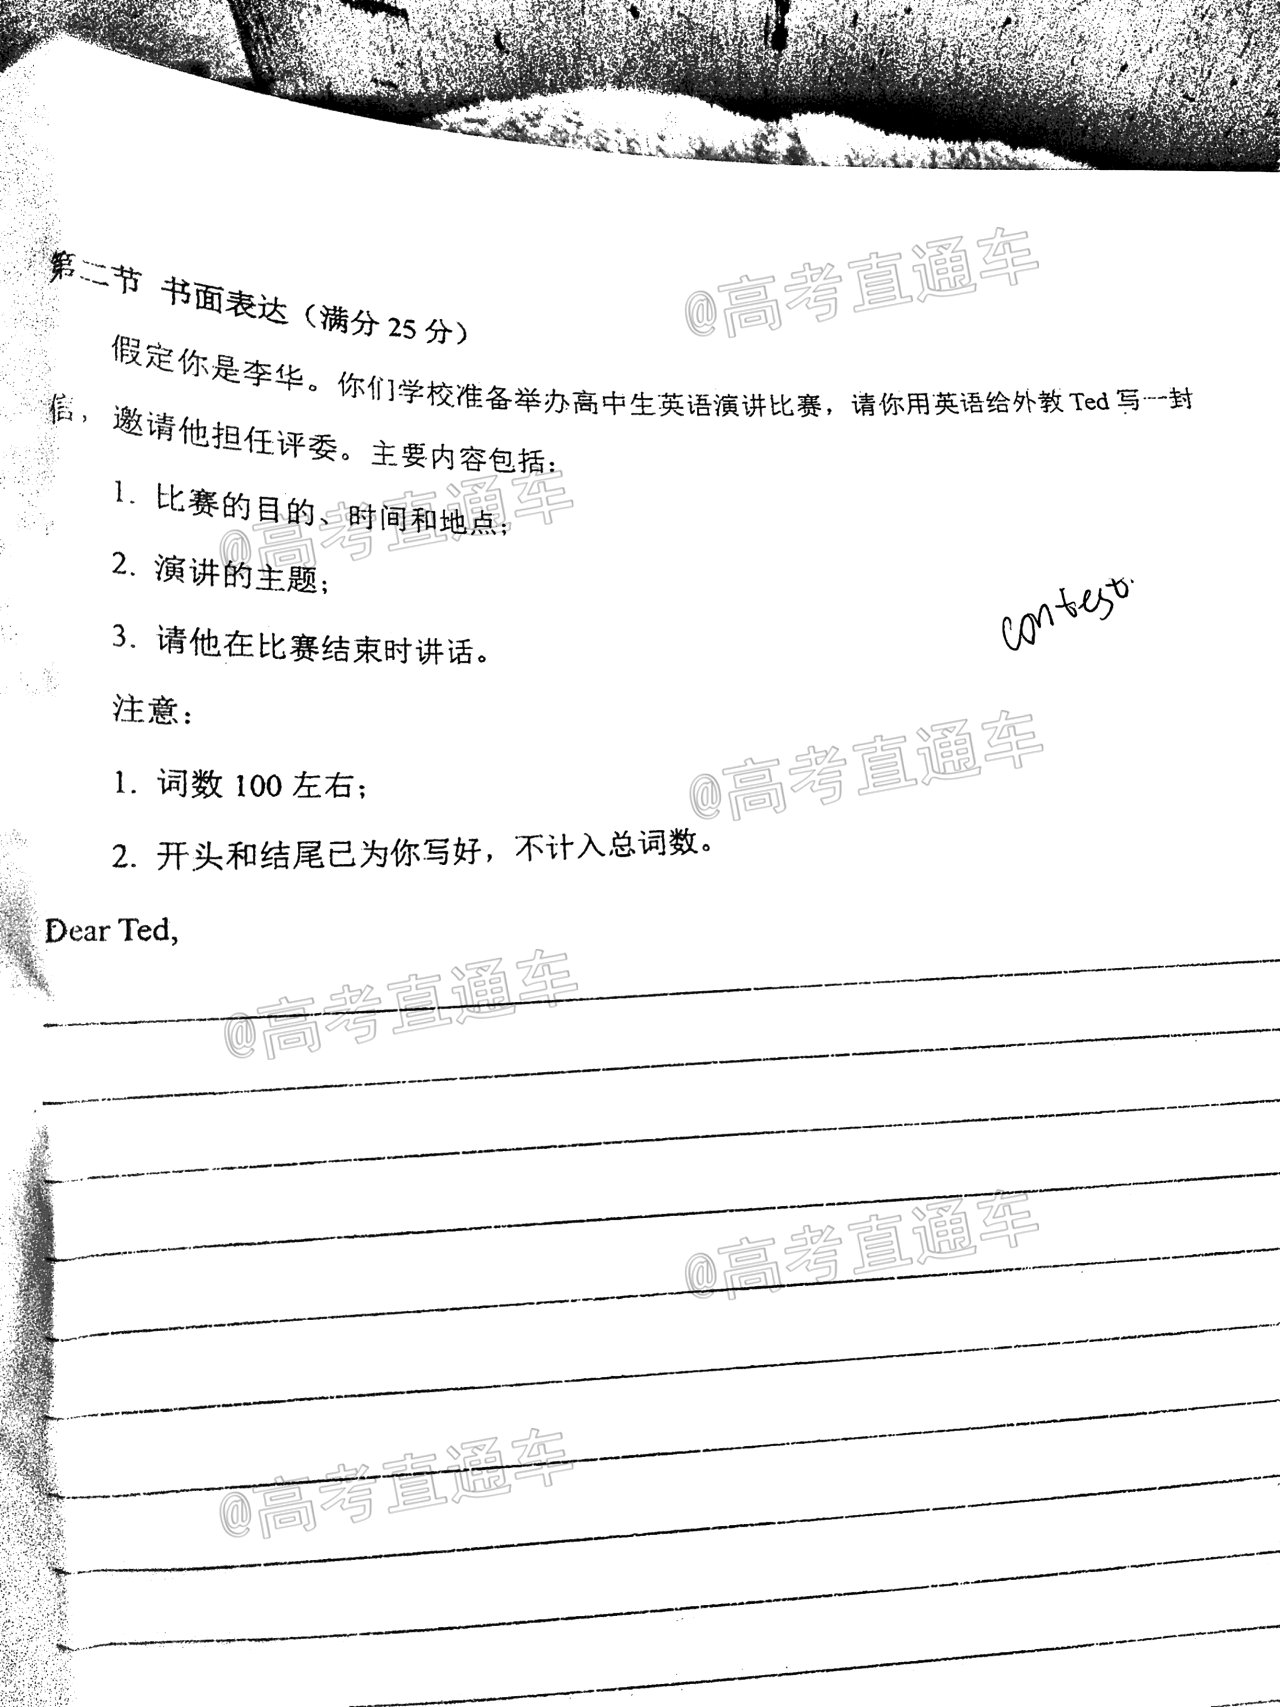 @高考直通车
第二节 书面表达（满分 25 分）
假定你是李华。你们学校准备举办高中生英语演讲比赛，请你用英语给外教 Ted 写一封
信，邀请他担任评委。主要内容包括：
@高考直通车
1. 比赛的目的、时间和地点；
2. 演讲的主题；
contest.
3. 请他在比赛结束时讲话。
注意：
@高考直通车
1. 词数 100 左右；
2. 开头和结尾已为你写好，不计入总词数。
Dear Ted,
@高考直通车
@高考直通车
@高考直通车